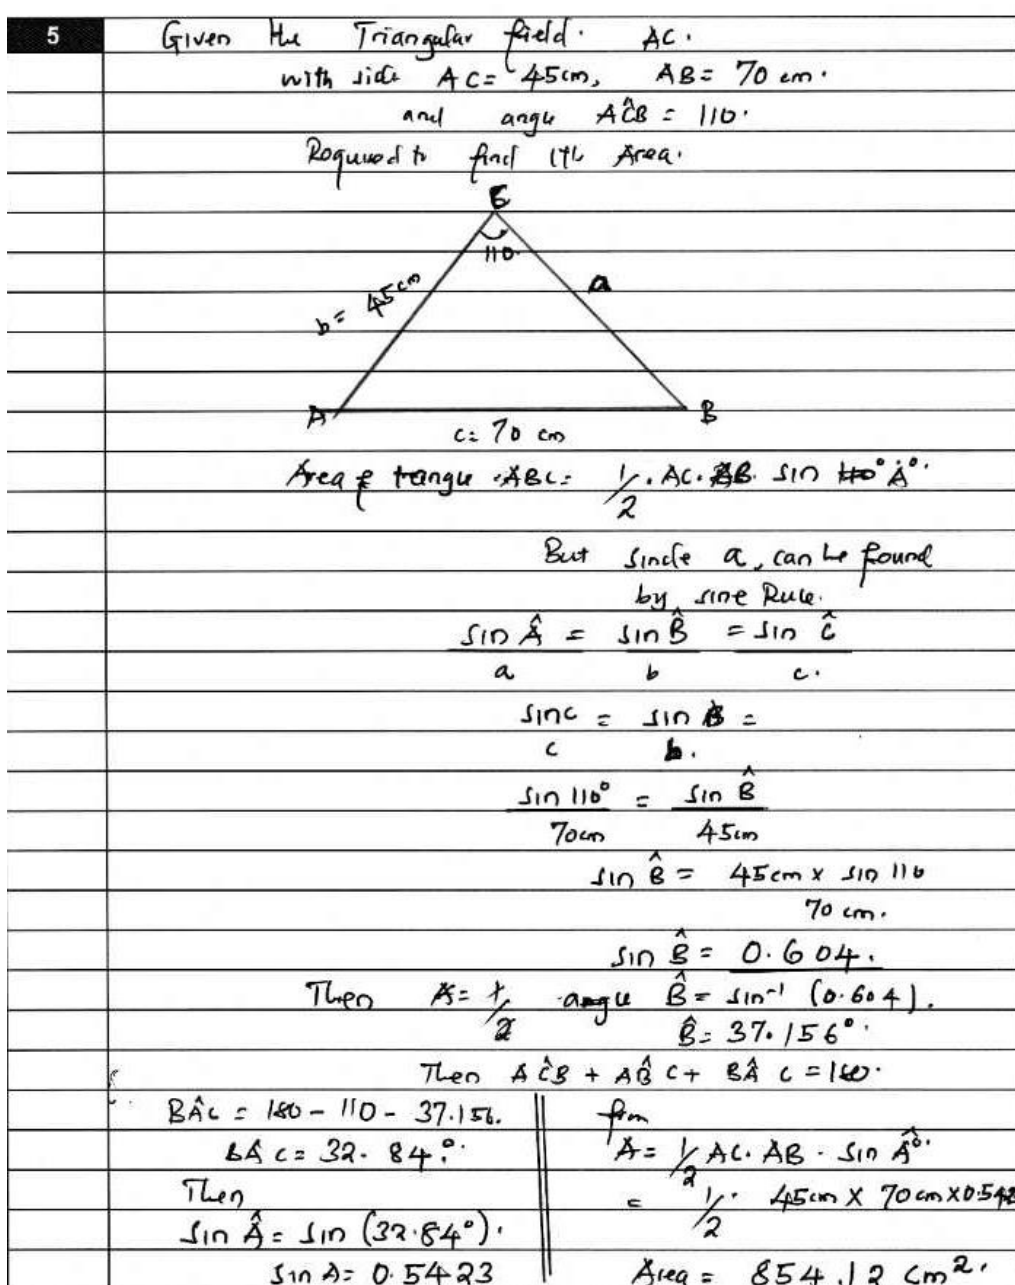 5
Given the Triangular field. AC.
with side AC = 45cm, AB = 70 cm.
and angle AĈB = 110.
Required to find its Area.
C
110.
a
b = 45cm
A B
c = 70 cm
Area of tangle ABC = 1/2 . AC. AB. sin 110° Â°.
But sinde a, can be found
by sine Rule.
sin Â/a = sin B̂/b = sin Ĉ/c.
sin c/c = sin B/b. =
sin 110°/70cm = sin B̂/45cm
sin B̂ = 45cm x sin 110
70 cm.
sin B̂ = 0.604.
Then A = 1/2 angle B̂ = sin⁻¹ (0.604).
B̂ = 37.156°.
Then AĈB + AB̂C + BÂC = 180.
BÂC = 180 - 110 - 37.156.
BÂC = 32.84°.
Then
sin Â = sin (32.84°).
sin A = 0.5423
from
A = 1/2 AC. AB . sin Â°.
= 1/2 . 45cm X 70cm X 0.542
Area = 854.12 cm².